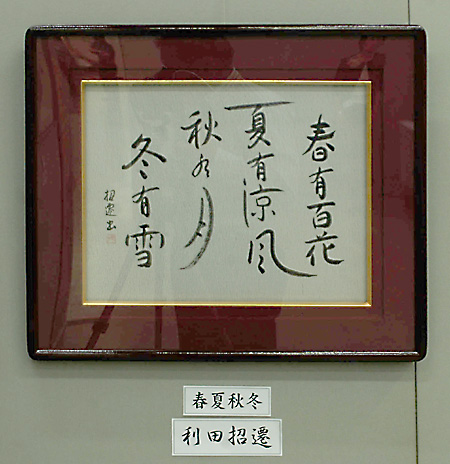 春有百花
夏有涼風
秋有月
冬有雪
招遷書
春夏秋冬
利田招遷